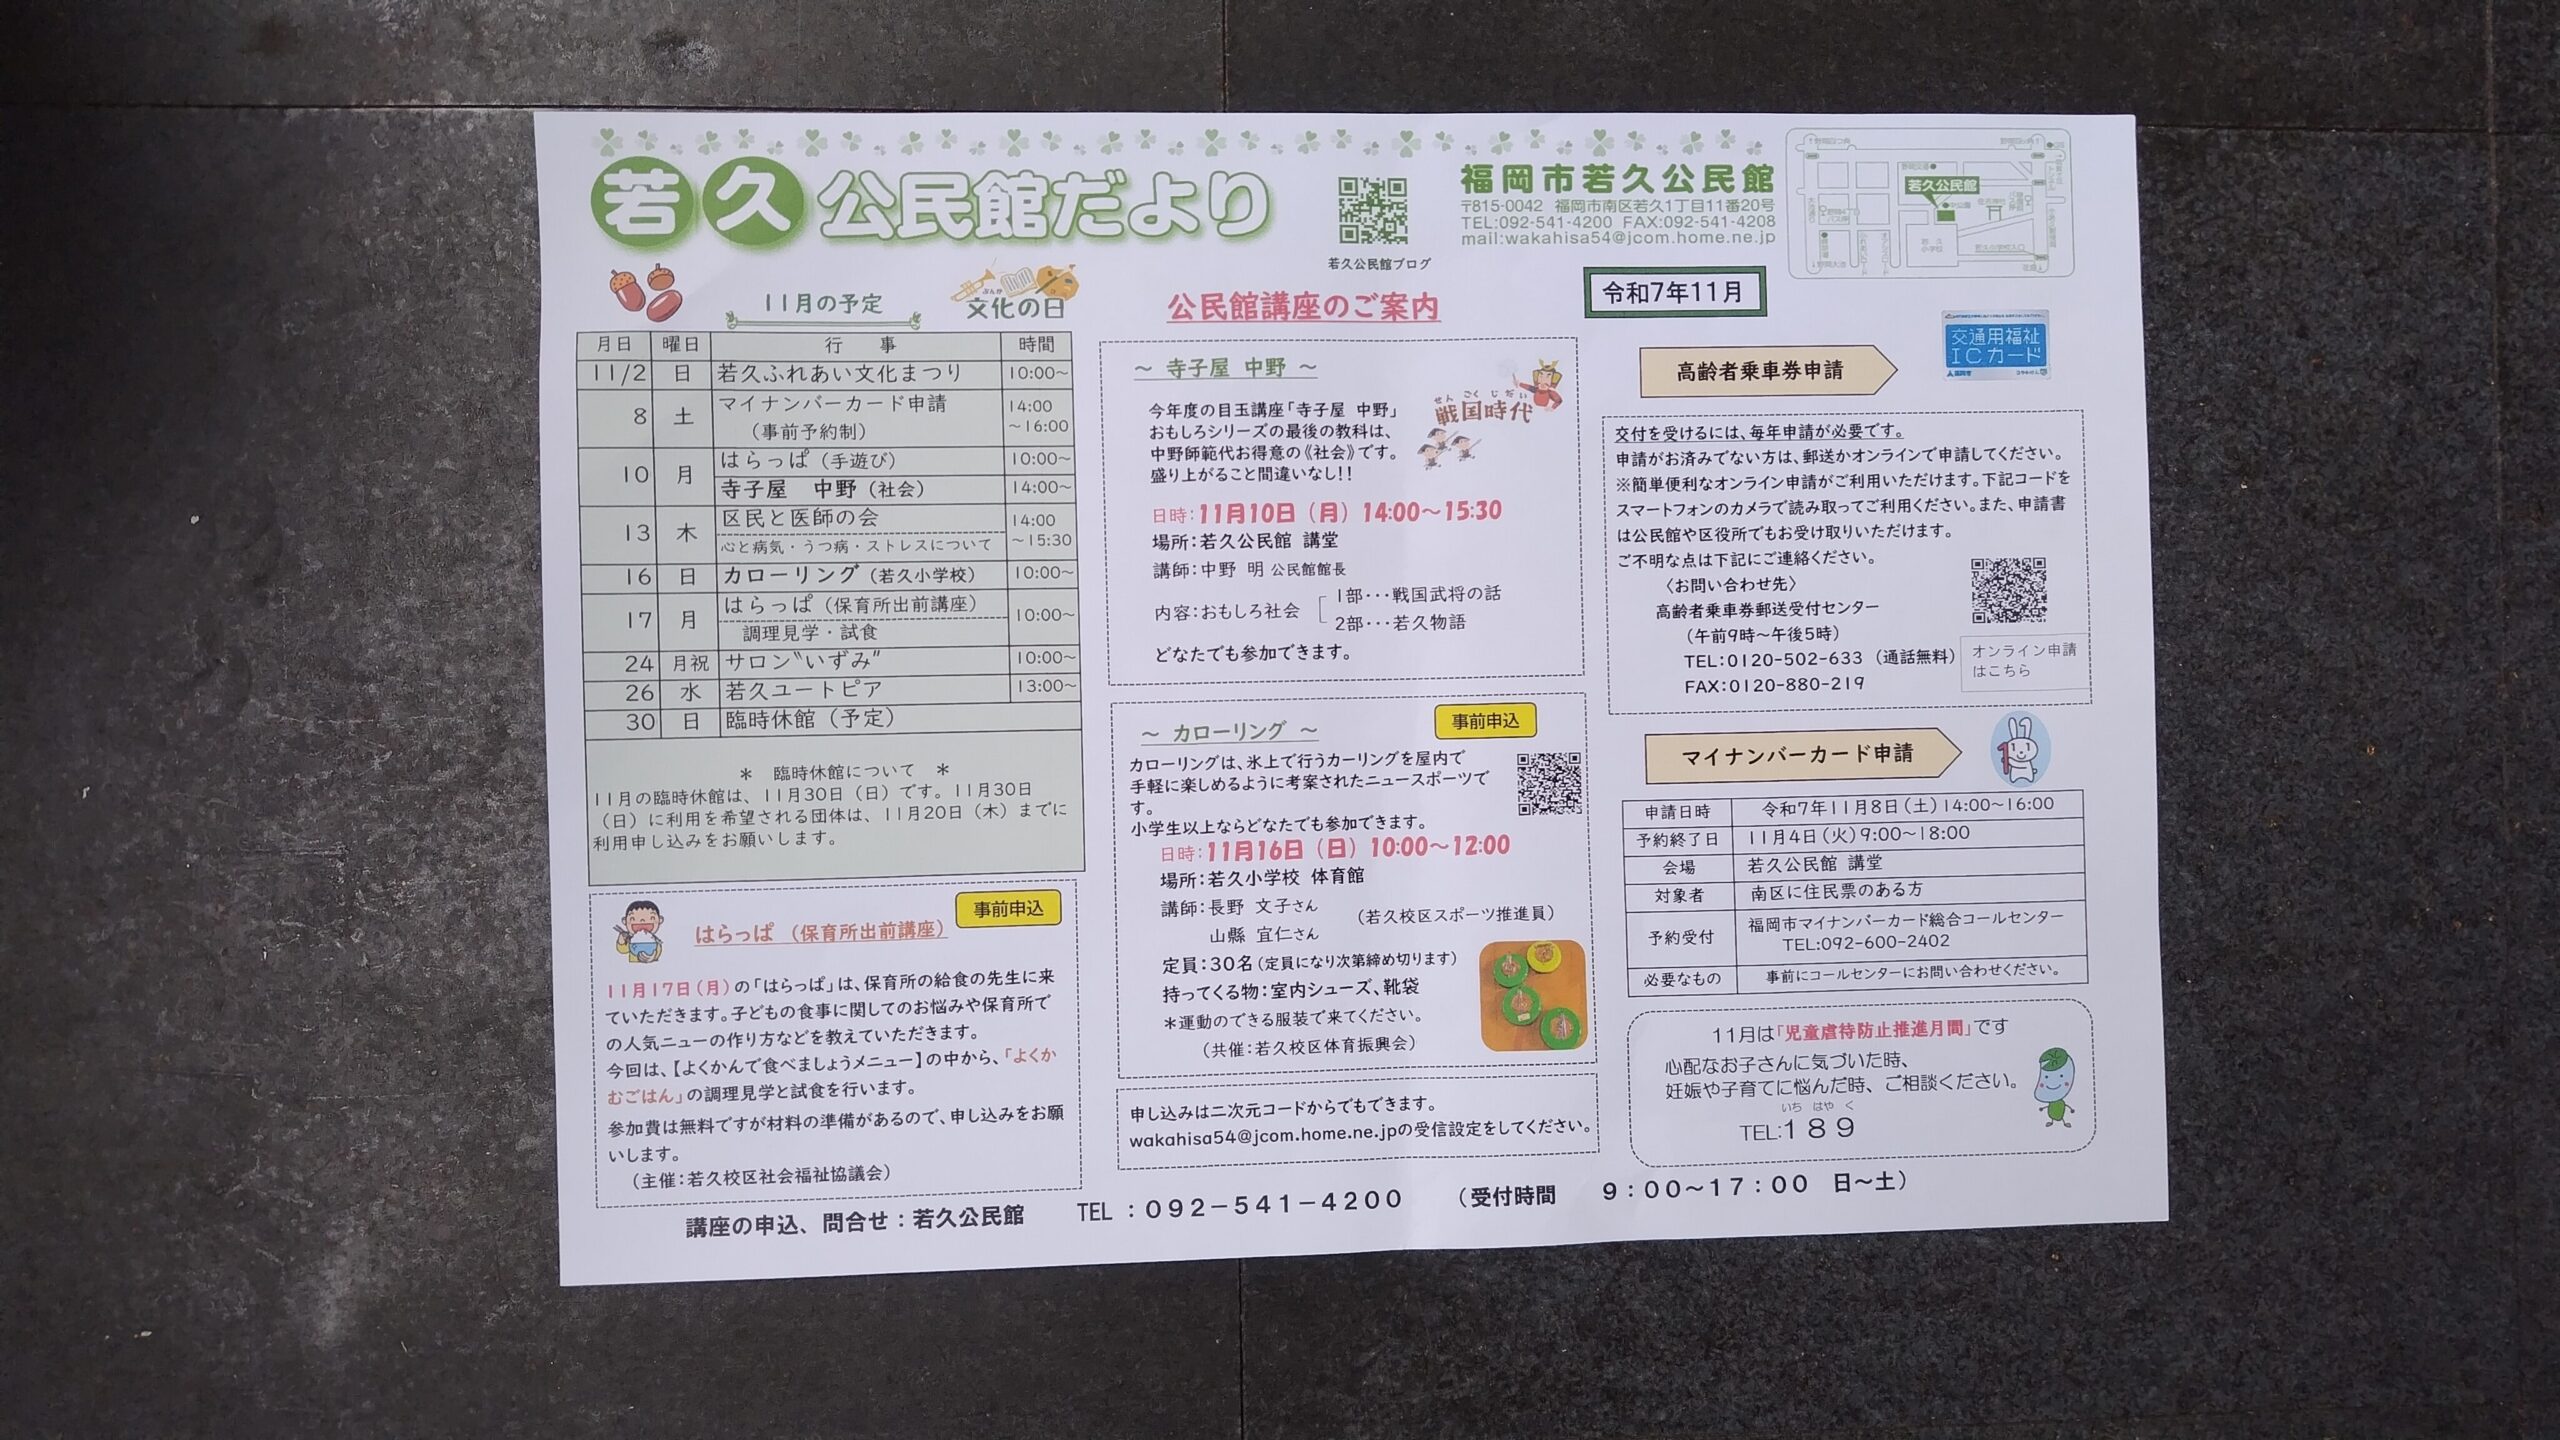 若久公民館だより
若久公民館ブログ
福岡市若久公民館
〒815-0042 福岡市南区若久1丁目11番20号
TEL:092-541-4200 FAX:092-541-4208
mail:wakahisa54@jcom.home.ne.jp
若久公民館
若久
小学校
令和7年11月
11月の予定
ぶんか ひ
文化の日
月日 曜日 行事 時間
11/2 日 若久ふれあい文化まつり 10:00~
8 土 マイナンバーカード申請 14:00
(事前予約制) ~16:00
10 月 はらっぱ(手遊び) 10:00~
寺子屋 中野(社会) 14:00~
13 木 区民と医師の会 14:00
心と病気・うつ病・ストレスについて ~15:30
16 日 カローリング(若久小学校) 10:00~
17 月 はらっぱ(保育所出前講座) 10:00~
調理見学・試食
24 月祝 サロン〝いずみ〟 10:00~
26 水 若久ユートピア 13:00~
30 日 臨時休館(予定)
* 臨時休館について *
11月の臨時休館は、11月30日(日)です。11月30日
(日)に利用を希望される団体は、11月20日(木)までに
利用申し込みをお願いします。
事前申込
はらっぱ (保育所出前講座)
11月17日(月)の「はらっぱ」は、保育所の給食の先生に来
ていただきます。子どもの食事に関してのお悩みや保育所で
の人気ニューの作り方などを教えていただきます。
今回は、【よくかんで食べましょうメニュー】の中から、「よくか
むごはん」の調理見学と試食を行います。
参加費は無料ですが材料の準備があるので、申し込みをお願
いします。
(主催:若久校区社会福祉協議会)
公民館講座のご案内
~ 寺子屋 中野 ~
せんごくじだい
戦国時代
今年度の目玉講座「寺子屋 中野」
おもしろシリーズの最後の教科は、
中野師範代お得意の《社会》です。
盛り上がること間違いなし!!
日時:11月10日(月)14:00~15:30
場所:若久公民館 講堂
講師:中野 明 公民館館長
内容:おもしろ社会
1部・・・戦国武将の話
2部・・・若久物語
どなたでも参加できます。
~ カローリング ~
事前申込
カローリングは、氷上で行うカーリングを屋内で
手軽に楽しめるように考案されたニュースポーツで
す。
小学生以上ならどなたでも参加できます。
日時:11月16日(日)10:00~12:00
場所:若久小学校 体育館
講師:長野 文子さん
山縣 宜仁さん
(若久校区スポーツ推進員)
定員:30名(定員になり次第締め切ります)
持ってくる物:室内シューズ、靴袋
*運動のできる服装で来てください。
(共催:若久校区体育振興会)
申し込みは二次元コードからでもできます。
wakahisa54@jcom.home.ne.jpの受信設定をしてください。
高齢者乗車券申請
交通用福祉
ICカード
交付を受けるには、毎年申請が必要です。
申請がお済みでない方は、郵送かオンラインで申請してください。
※簡単便利なオンライン申請がご利用いただけます。下記コードを
スマートフォンのカメラで読み取ってご利用ください。また、申請書
は公民館や区役所でもお受け取りいただけます。
ご不明な点は下記にご連絡ください。
〈お問い合わせ先〉
高齢者乗車券郵送受付センター
(午前9時~午後5時)
TEL:0120-502-633 (通話無料)
FAX:0120-880-219
オンライン申請
はこちら
マイナンバーカード申請
申請日時 令和7年11月8日(土)14:00~16:00
予約終了日 11月4日(火)9:00~18:00
会場 若久公民館 講堂
対象者 南区に住民票のある方
予約受付 福岡市マイナンバーカード総合コールセンター
TEL:092-600-2402
必要なもの 事前にコールセンターにお問い合わせください。
11月は「児童虐待防止推進月間」です
心配なお子さんに気づいた時、
妊娠や子育てに悩んだ時、ご相談ください。
いち はや く
TEL:189
講座の申込、問合せ:若久公民館 TEL:092-541-4200 (受付時間 9:00~17:00 日~土)